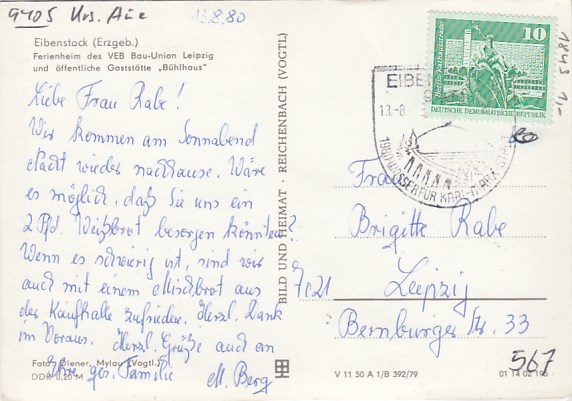 9405 Krs. Aue
13.8.80
Eibenstock (Erzgeb.)
Ferienheim des VEB Bau-Union Leipzig
und öffentliche Gaststätte „Bühlhaus"
Liebe Frau Rabe!
Wir kommen am Sonnabend
statt wieder nachhause. Wäre
es möglich, daß Sie uns ein
2 Pfd. Weißbrot besorgen könnten?
Wenn es schwierig ist, sind wir
auch mit einem Mischbrot aus
der Kaufhalle zufrieden. Herzl. Dank
im Voraus. Herzl. Grüße auch an
Ihre ges. Familie
M. Berg
Foto: Diener, Mylau (Vogtl.)
DDR 0,20 M
BILD UND HEIMAT · REICHENBACH (VOGTL)
10
Berlin, Rathausstraße
DEUTSCHE DEMOKRATISCHE REPUBLIK
1843 1,-
EIBEN
13.-8.
1980 WASSER FÜR
Frau
Brigitte Rabe
7021 Leipzig
Bernburger Str. 33
567
V 11 50 A 1/B 392/79
01 14 02 195